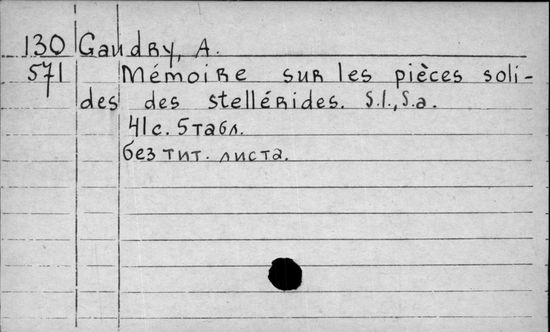 130 Gaudry, A.
571 Mémoire sur les pièces soli-
des des stellérides. S.l., S.a.
41 с. 5 табл.
без тит. листа.